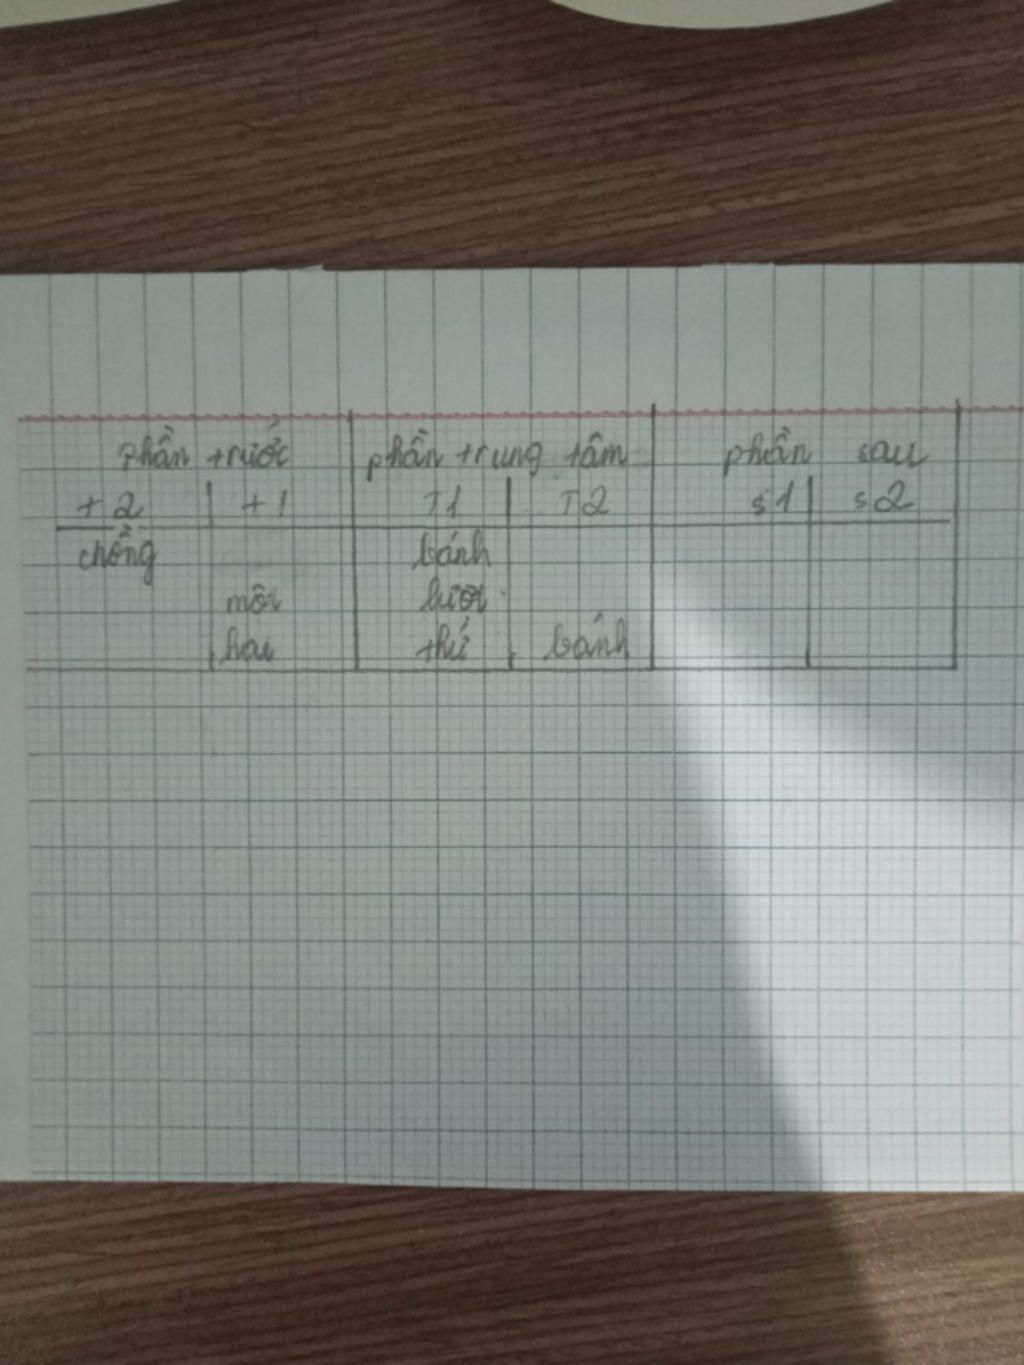 phần trước phần trung tâm phần sau
t2 t1 T1 T2 s1 s2
chồng bánh
một lượt
hai thứ bánh